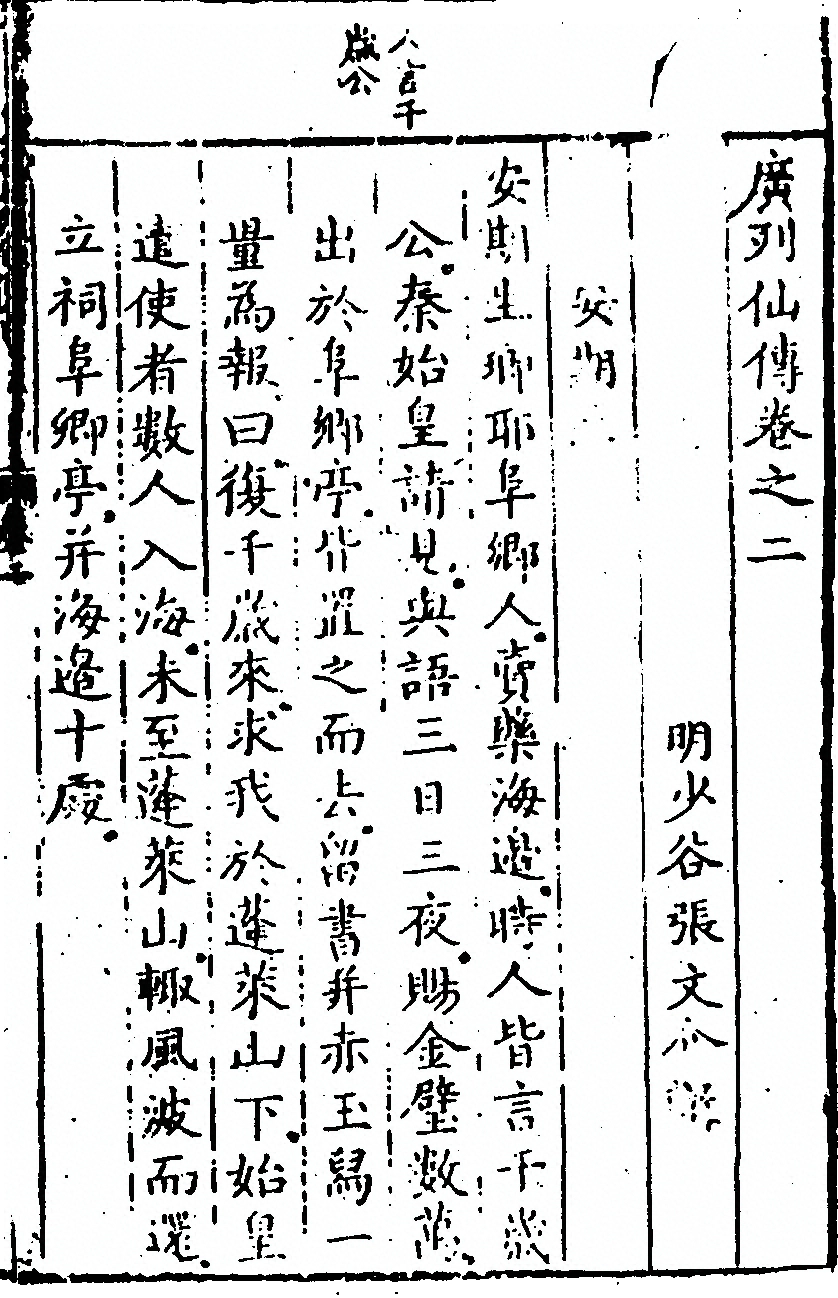 人言千
歲公
廣列仙傳卷之二
明少谷張文介
安期
安期生瑯耶阜鄉人賣藥海邊時人皆言千歲
公秦始皇請見與語三日三夜賜金璧數萬
出於阜鄉亭皆置之而去留書并赤玉舄一
量為報曰復千歲來求我於蓬萊山下始皇
遣使者數人入海未至蓬萊山輙風波而還
立祠阜鄉亭并海邊十處